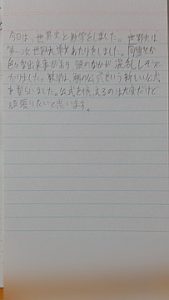 今日は、世界史と数学をしました。世界史は
第一次世界大戦あたりをしました。同盟とか
色々な出来事があり頭のなかが混乱しそうで
たりました。数学は、解の公式という新しい公式
を習いました。公式を覚えるのは大変だけど
頑張りたいと思います。